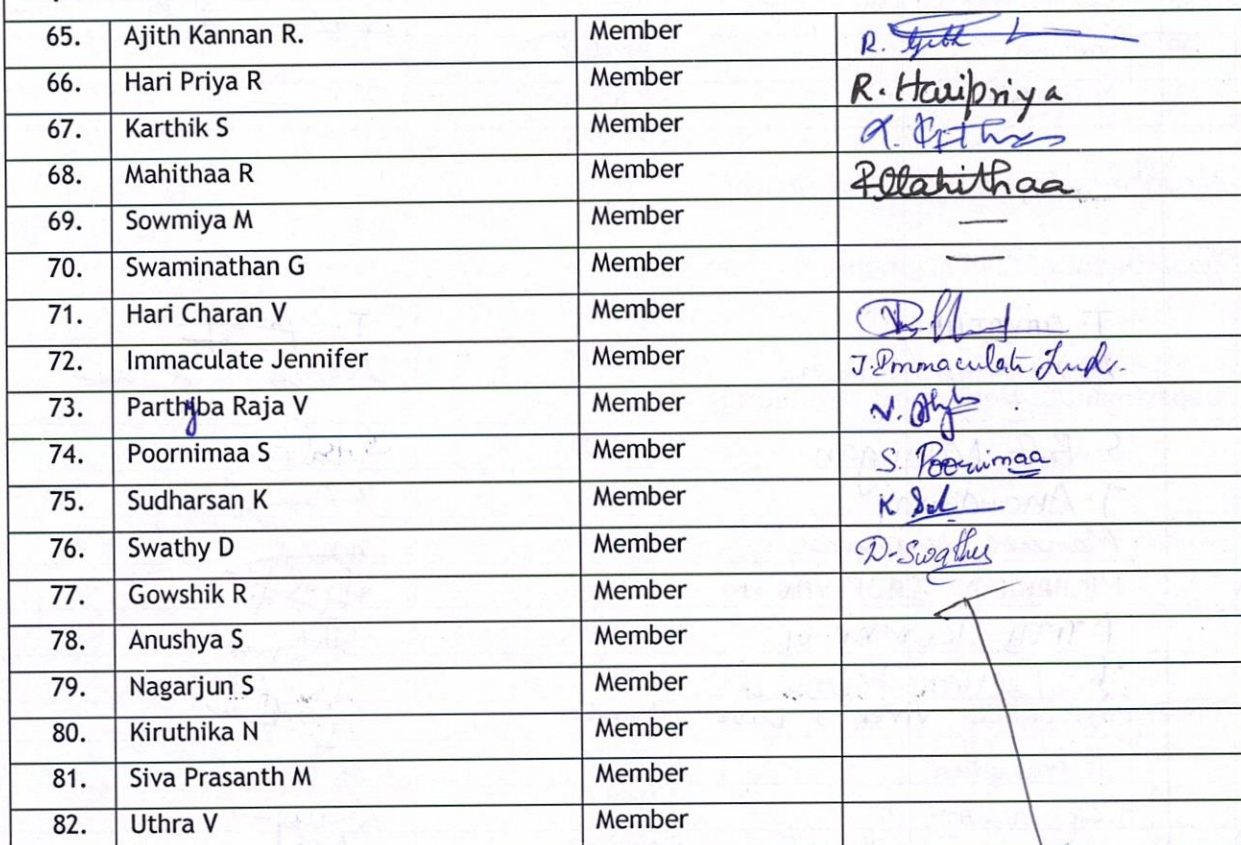 65. Ajith Kannan R. Member R. Ajith
66. Hari Priya R Member R. Haripriya
67. Karthik S Member
68. Mahithaa R Member R Mahithaa
69. Sowmiya M Member —
70. Swaminathan G Member —
71. Hari Charan V Member
72. Immaculate Jennifer Member J. Immaculate
73. Parthiba Raja V Member V.
74. Poornimaa S Member S. Poornimaa
75. Sudharsan K Member K
76. Swathy D Member D. Swathy
77. Gowshik R Member
78. Anushya S Member
79. Nagarjun S Member
80. Kiruthika N Member
81. Siva Prasanth M Member
82. Uthra V Member